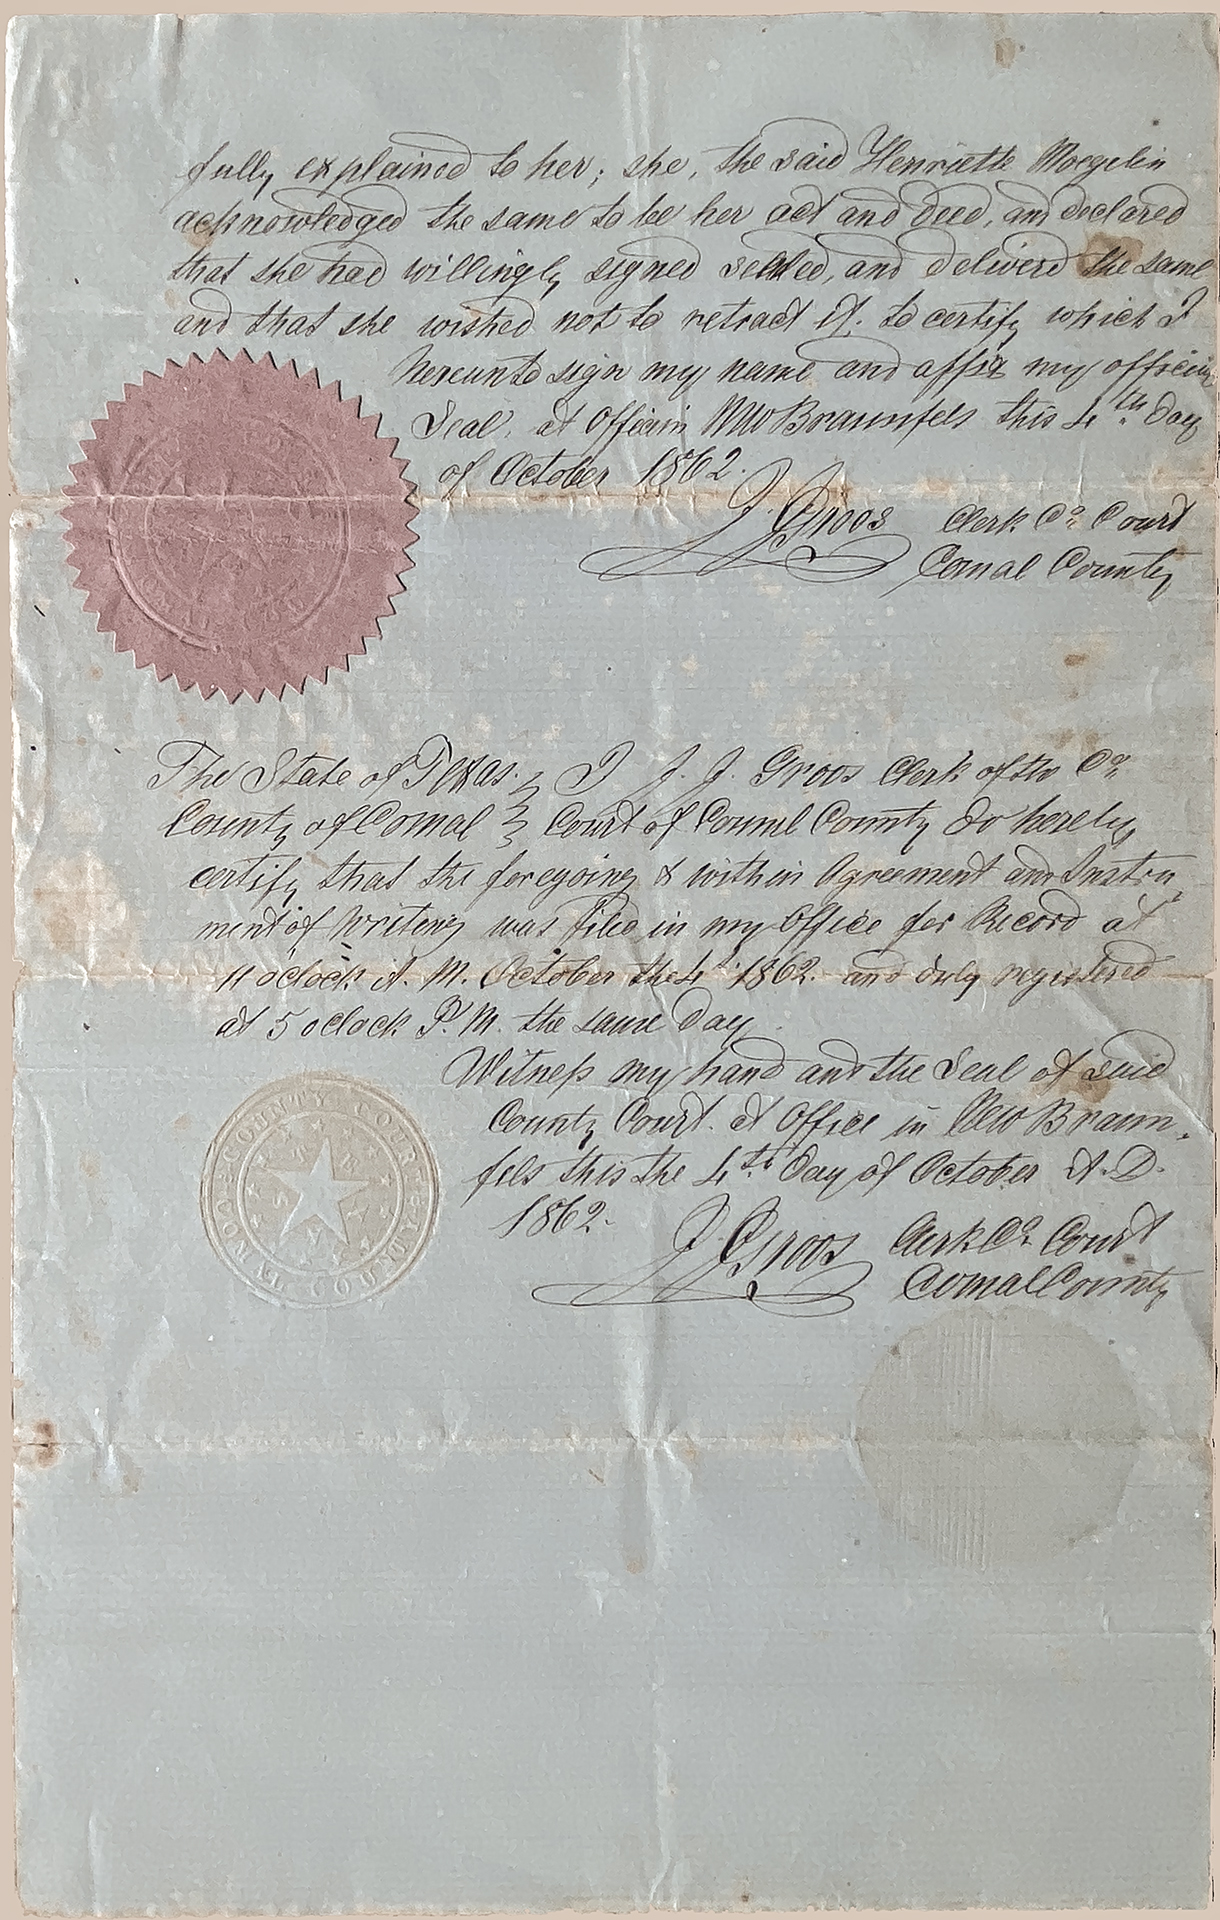 fully explained to her; she, the said Henriette Moegelin
acknowledged the same to be her act and deed, and declared
that she had willingly signed sealed, and delivered the same
and that she wished not to retract it. to certify which I
hereunto sign my name and affix my official
Seal, at Office in New Braunfels this 4th. day
of October 1862.
J. J. Groos Clerk Co. Court
Comal County
The State of Texas. } I J. J. Groos Clerk of the Co.
County of Comal } Court of Comal County do hereby
certify that the foregoing & within Agreement and Instru
ment of Writing was filed in my Office for Record at
11 oclock A. M. October the 4th 1862. and duly registered
at 5 oclock P. M. the same day
Witness my hand and the Seal of said
County Court. at Office in New Braun,
fels this the 4th. day of October A. D.
1862.
COUNTY COURT
COMAL COUNTY
TEXAS
J. J. Groos Clerk Co. Court
Comal County